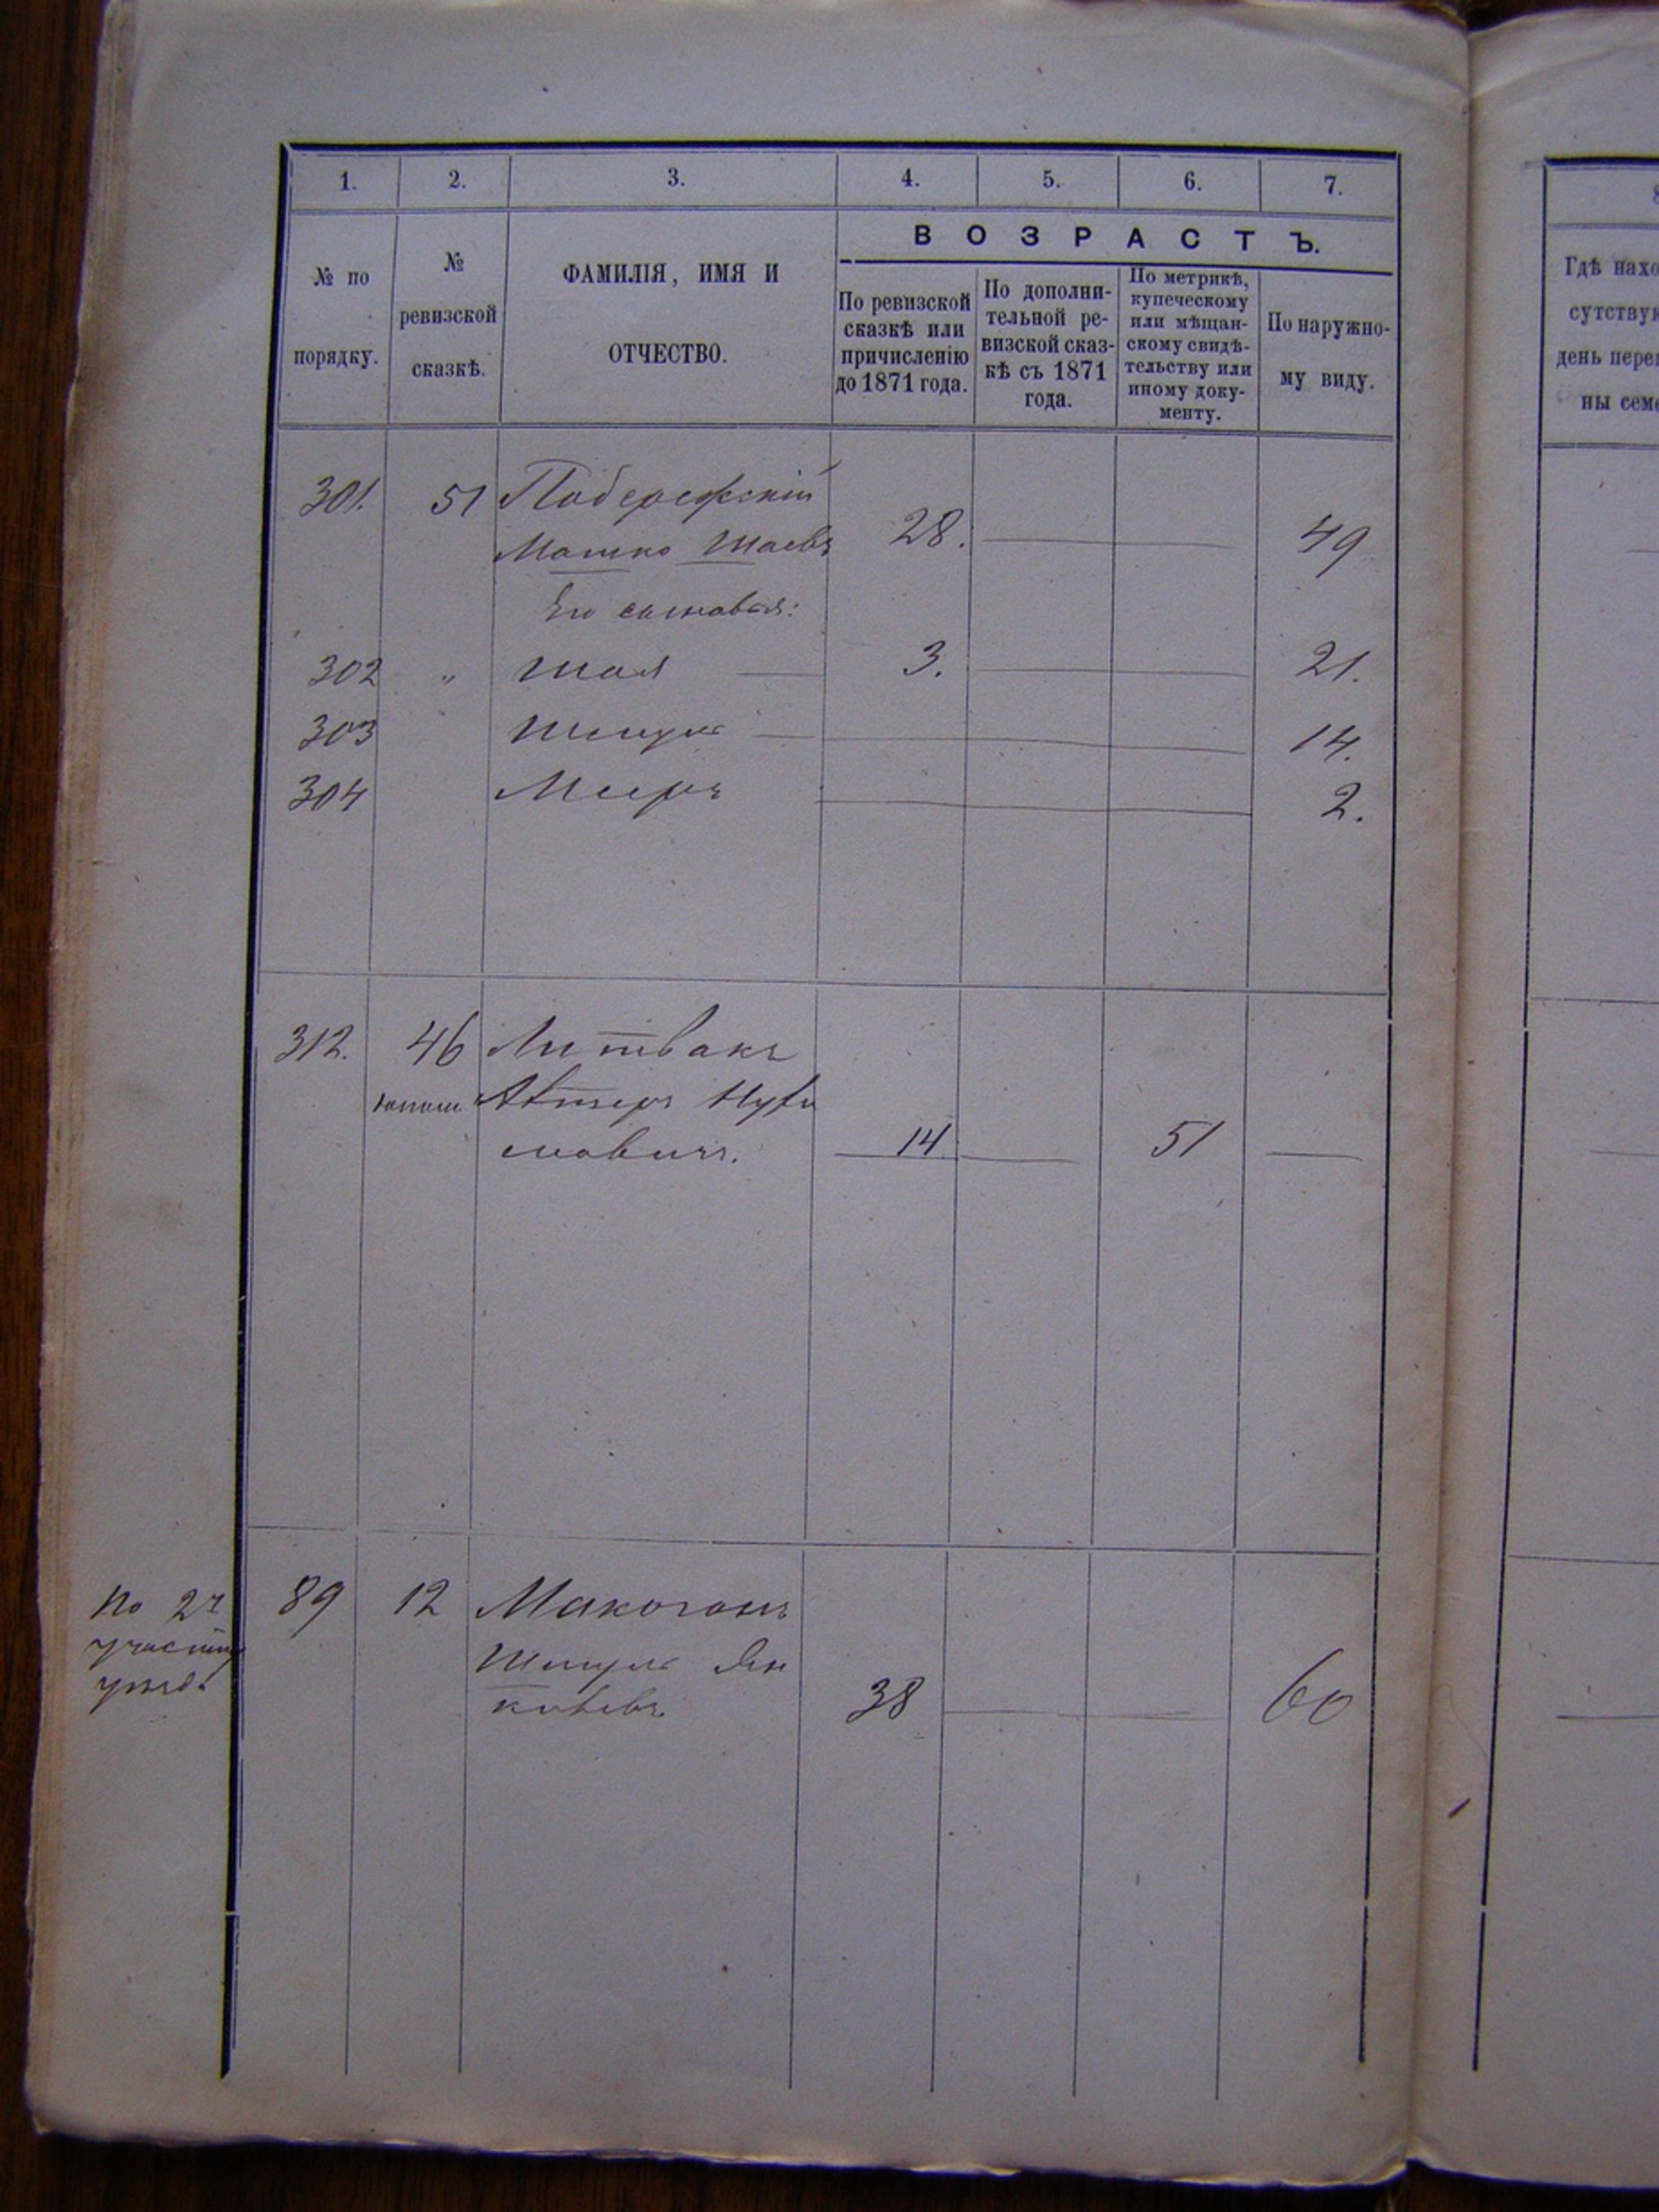 1. 2. 3. 4. 5. 6. 7.
№ по порядку.
№ ревизской сказкѣ.
ФАМИЛІЯ, ИМЯ И ОТЧЕСТВО.
ВОЗРАСТЪ.
По ревизской сказкѣ или причисленію до 1871 года.
По дополни-
тельной ре-
визской сказ-
кѣ съ 1871
года.
По метрикѣ,
купеческому
или мѣщан-
скому свидѣ-
тельству или
иному доку-
менту.
По наружно-
му виду.
301. 51 Побережскій
Мошко Шаевъ 28. 49
Его сыновья:
302 " Шая 3. 21.
303 Шмуль 14.
304 Мееръ 2.
312. 46 Литвакъ
Нухи
мовичъ. 14 51
По 2му
участку
89 12 Макогонъ
Шмуль Ян
келевъ 38 60
8
Гдѣ нахо
сутствую
день пере
ны сем